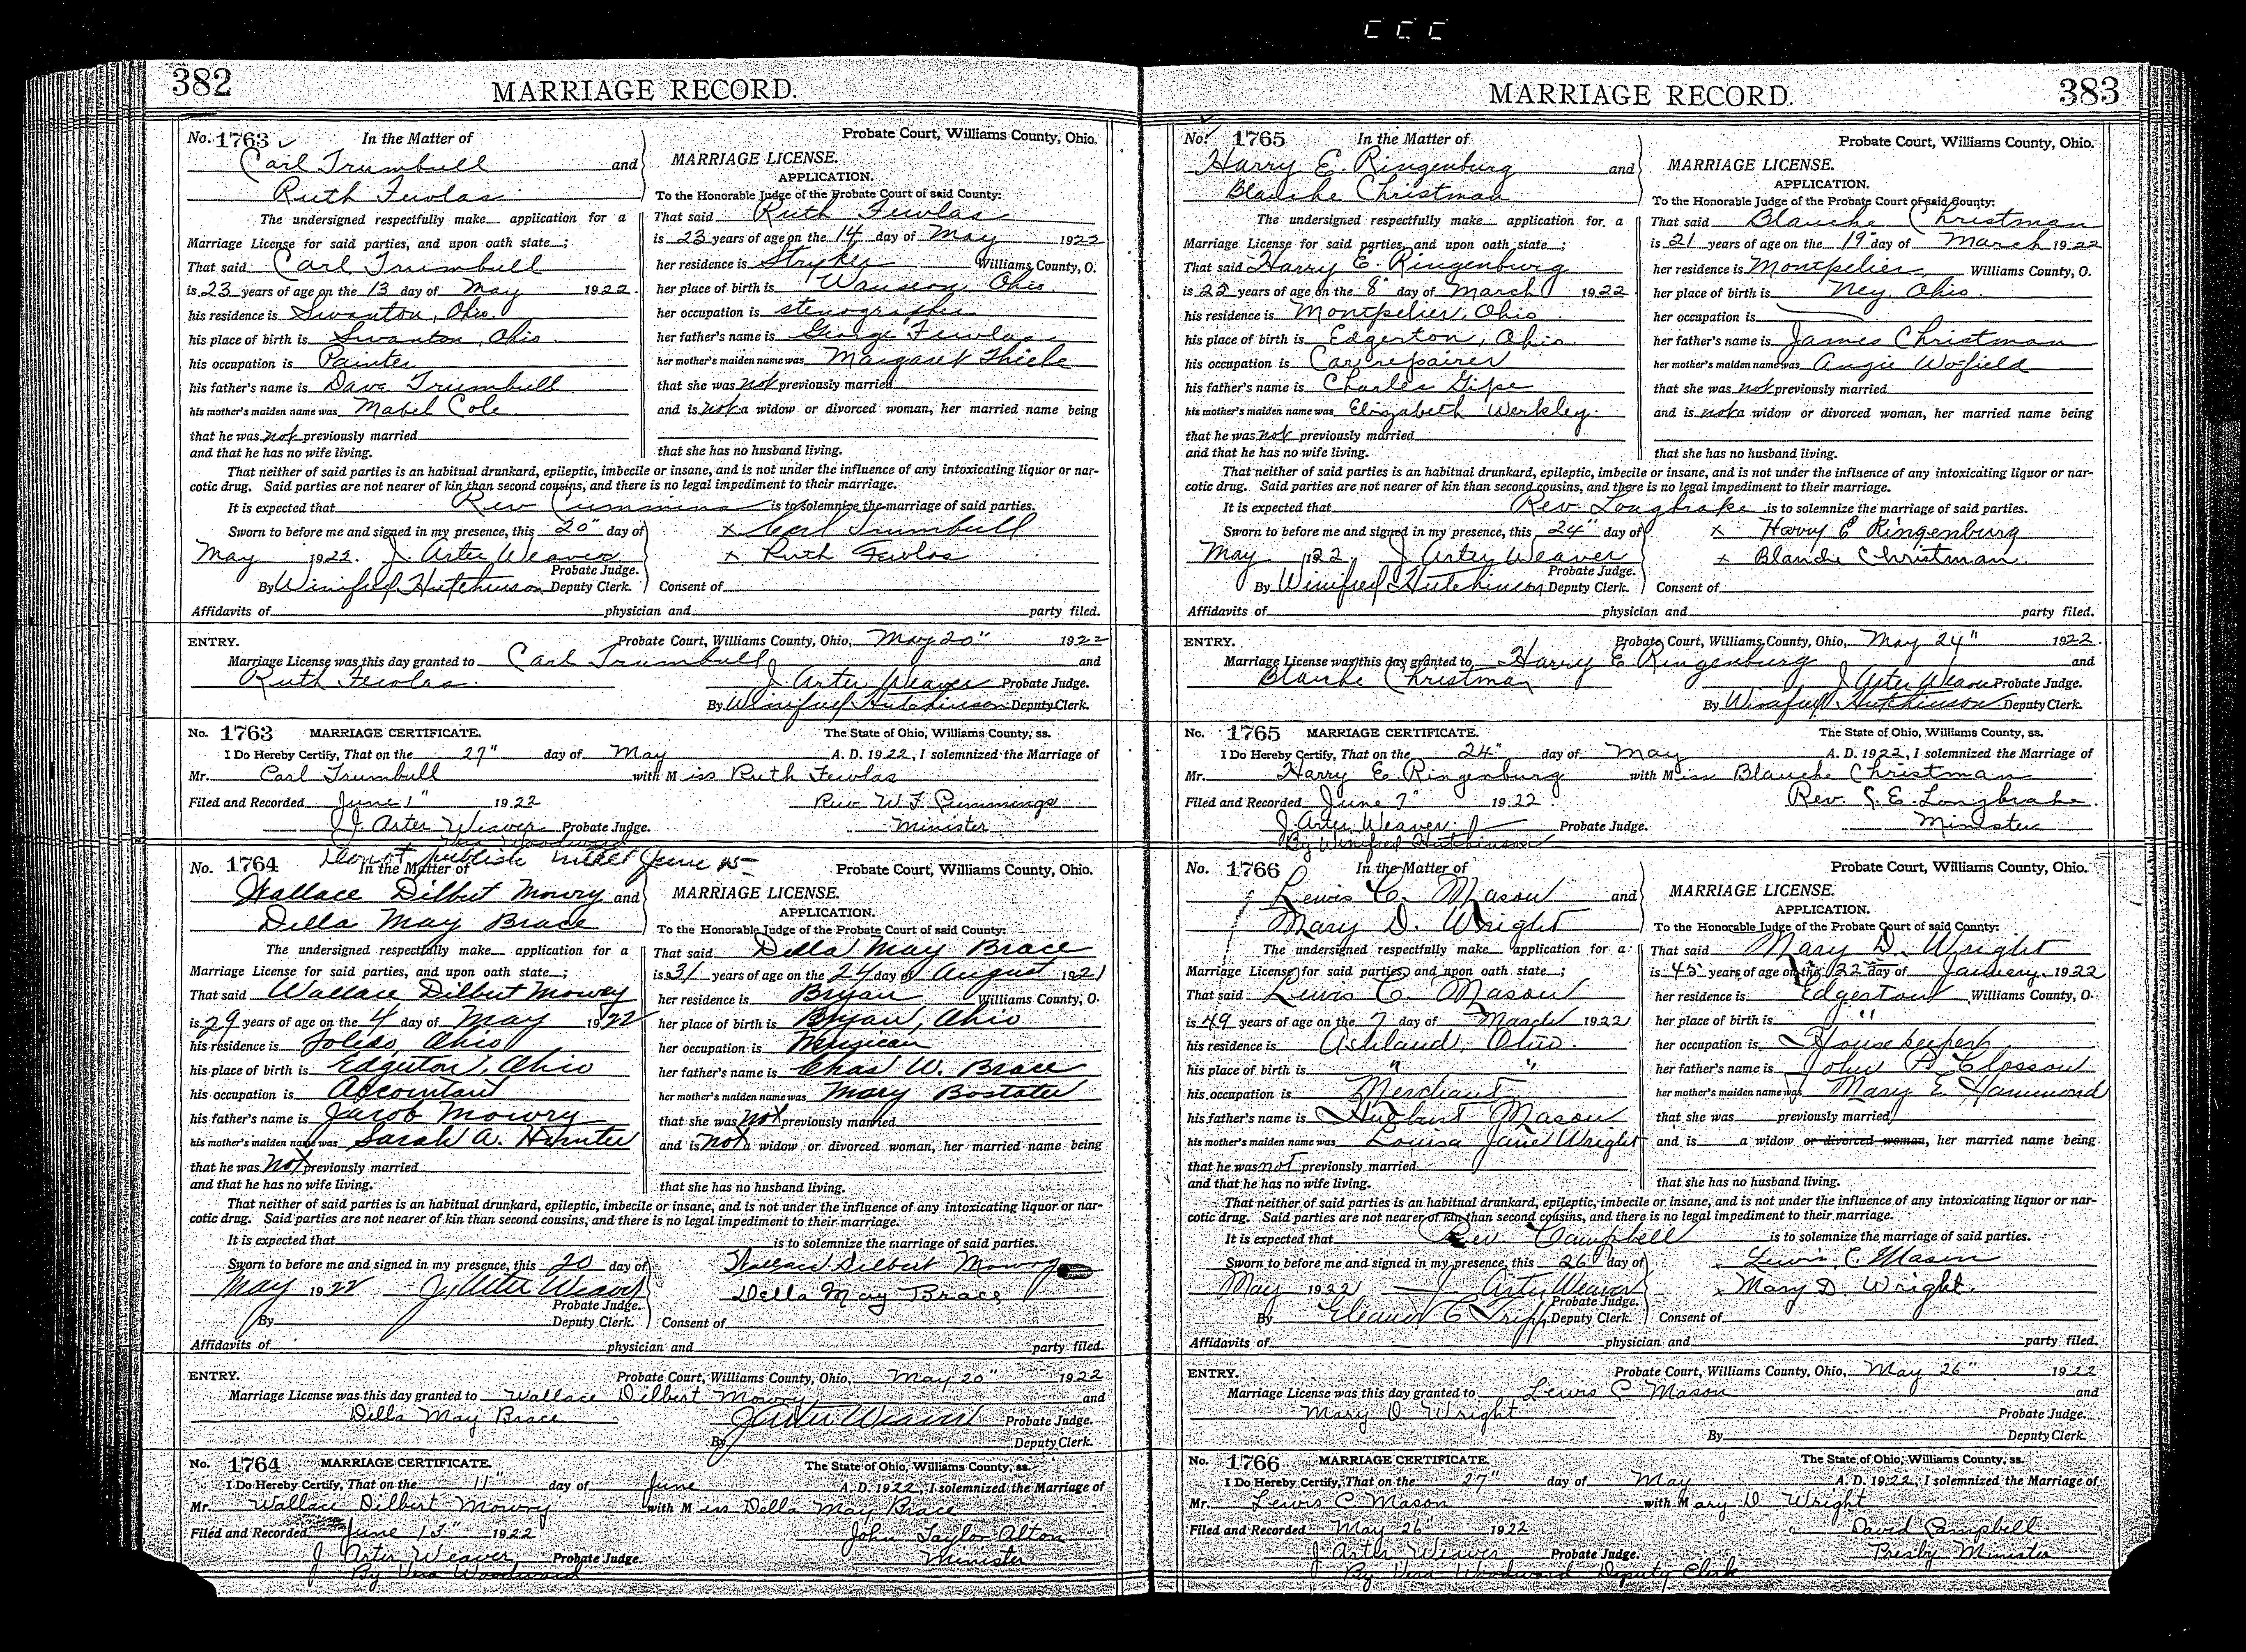 382
MARRIAGE RECORD.
No. 1763
In the Matter of
Probate Court, Williams County, Ohio.
Carl Trumbull and
Ruth Fewlas
MARRIAGE LICENSE.
APPLICATION.
To the Honorable Judge of the Probate Court of said County:
The undersigned respectfully make application for a
Marriage License for said parties, and upon oath state ;
That said Carl Trumbull
is 23 years of age on the 13 day of May 1922.
his residence is Swanton, Ohio.
his place of birth is Swanton, Ohio.
his occupation is Painter
his father's name is Dave Trumbull
his mother's maiden name was Mabel Cole
that he was not previously married
and that he has no wife living.
That said Ruth Fewlas
is 23 years of age on the 14 day of May 1922
her residence is Stryker Williams County, O.
her place of birth is Wauseon, Ohio.
her occupation is stenographer
her father's name is George Fewlas
her mother's maiden name was Margaret Thiele
that she was not previously married
and is not a widow or divorced woman, her married name being
that she has no husband living.
That neither of said parties is an habitual drunkard, epileptic, imbecile or insane, and is not under the influence of any intoxicating liquor or nar-
cotic drug. Said parties are not nearer of kin than second cousins, and there is no legal impediment to their marriage.
It is expected that Rev Cummins is to solemnize the marriage of said parties.
Sworn to before me and signed in my presence, this 20" day of
May 1922. J. Arter Weaver
Probate Judge.
By Winifred Hutchinson Deputy Clerk.
x Carl Trumbull
x Ruth Fewlas
Consent of
Affidavits of physician and party filed.
ENTRY.
Probate Court, Williams County, Ohio, May 20" 1922
Marriage License was this day granted to Carl Trumbull and
Ruth Fewlas.
J Arter Weaver Probate Judge.
By Winifred Hutchinson Deputy Clerk.
No. 1763 MARRIAGE CERTIFICATE. The State of Ohio, Williams County, ss.
I Do Hereby Certify, That on the 27" day of May A. D. 1922, I solemnized the Marriage of
Mr. Carl Trumbull with Miss Ruth Fewlas
Filed and Recorded June 1" 1922 Rev. W F Cummings
J. Arter Weaver Probate Judge. Minister
Vera Woodward
Do not publish until June 15
No. 1764
In the Matter of
Probate Court, Williams County, Ohio.
Wallace Dilbert Mowry and
Della May Brace
MARRIAGE LICENSE.
APPLICATION.
To the Honorable Judge of the Probate Court of said County:
The undersigned respectfully make application for a
Marriage License for said parties, and upon oath state ;
That said Wallace Dilbert Mowry
is 29 years of age on the 4 day of May 1922
his residence is Toledo, Ohio
his place of birth is Edgerton, Ohio
his occupation is Accountant
his father's name is Jacob Mowry
his mother's maiden name was Sarah A. Hunter
that he was not previously married
and that he has no wife living.
That said Della May Brace
is 31 years of age on the 24 day of August 1921
her residence is Bryan Williams County, O.
her place of birth is Bryan, Ohio
her occupation is Musician
her father's name is Chas W. Brace
her mother's maiden name was Mary Bostater
that she was not previously married
and is not a widow or divorced woman, her married name being
that she has no husband living.
That neither of said parties is an habitual drunkard, epileptic, imbecile or insane, and is not under the influence of any intoxicating liquor or nar-
cotic drug. Said parties are not nearer of kin than second cousins, and there is no legal impediment to their marriage.
It is expected that is to solemnize the marriage of said parties.
Sworn to before me and signed in my presence, this 20 day of
May 1922 J Arter Weaver
Probate Judge.
By Deputy Clerk.
Wallace Dilbert Mowry
Della May Brace
Consent of
Affidavits of physician and party filed.
ENTRY.
Probate Court, Williams County, Ohio, May 20" 1922
Marriage License was this day granted to Wallace Dilbert Mowry and
Della May Brace
J Arter Weaver Probate Judge.
By Deputy Clerk.
No. 1764 MARRIAGE CERTIFICATE. The State of Ohio, Williams County, ss.
I Do Hereby Certify, That on the 11" day of June A. D. 1922, I solemnized the Marriage of
Mr. Wallace Dilbert Mowry with Miss Della May Brace
Filed and Recorded June 13" 1922 John Taylor Alton
J Arter Weaver Probate Judge. Minister
By Vera Woodward
MARRIAGE RECORD.
383
No. 1765
In the Matter of
Probate Court, Williams County, Ohio.
Harry E. Ringenburg and
Blanche Christman
MARRIAGE LICENSE.
APPLICATION.
To the Honorable Judge of the Probate Court of said County:
The undersigned respectfully make application for a
Marriage License for said parties, and upon oath state ;
That said Harry E. Ringenburg
is 22 years of age on the 8" day of March 1922
his residence is Montpelier, Ohio
his place of birth is Edgerton, Ohio.
his occupation is Car repairer
his father's name is Charles Gipe
his mother's maiden name was Elizabeth Werkley.
that he was not previously married
and that he has no wife living.
That said Blanche Christman
is 21 years of age on the 19" day of March 1922
her residence is Montpelier, Williams County, O.
her place of birth is Ney, Ohio.
her occupation is
her father's name is James Christman
her mother's maiden name was Angie Wofield
that she was not previously married
and is not a widow or divorced woman, her married name being
that she has no husband living.
That neither of said parties is an habitual drunkard, epileptic, imbecile or insane, and is not under the influence of any intoxicating liquor or nar-
cotic drug. Said parties are not nearer of kin than second cousins, and there is no legal impediment to their marriage.
It is expected that Rev. Longbrake is to solemnize the marriage of said parties.
Sworn to before me and signed in my presence, this 24" day of
May 1922. J Arter Weaver
Probate Judge.
By Winifred Hutchinson Deputy Clerk.
x Harry E Ringenburg
x Blanche Christman.
Consent of
Affidavits of physician and party filed.
ENTRY.
Probate Court, Williams County, Ohio, May 24" 1922.
Marriage License was this day granted to Harry E. Ringenburg and
Blanche Christman
J Arter Weaver Probate Judge.
By Winifred Hutchinson Deputy Clerk.
No. 1765 MARRIAGE CERTIFICATE. The State of Ohio, Williams County, ss.
I Do Hereby Certify, That on the 24" day of May A. D. 1922, I solemnized the Marriage of
Mr. Harry E. Ringenburg with Miss Blanche Christman
Filed and Recorded June 7" 1922. Rev. E. Longbrake.
J Arter Weaver Probate Judge. Minister
By Winifred Hutchinson
No. 1766
In the Matter of
Probate Court, Williams County, Ohio.
Lewis C. Mason and
Mary D. Wright
MARRIAGE LICENSE.
APPLICATION.
To the Honorable Judge of the Probate Court of said County:
The undersigned respectfully make application for a
Marriage License for said parties, and upon oath state ;
That said Lewis C. Mason
is 49 years of age on the 7 day of March 1922
his residence is Ashland, Ohio.
his place of birth is " "
his occupation is Merchant
his father's name is Hurburt Mason
his mother's maiden name was Louisa Jane Wright
that he was not previously married
and that he has no wife living.
That said Mary D. Wright
is 45 years of age on the 22 day of January 1922
her residence is Edgerton Williams County, O.
her place of birth is "
her occupation is Housekeeper
her father's name is John B Closson
her mother's maiden name was Mary E Hammond
that she was previously married
and is a widow or divorced woman, her married name being
that she has no husband living.
That neither of said parties is an habitual drunkard, epileptic, imbecile or insane, and is not under the influence of any intoxicating liquor or nar-
cotic drug. Said parties are not nearer of kin than second cousins, and there is no legal impediment to their marriage.
It is expected that Rev. Campbell is to solemnize the marriage of said parties.
Sworn to before me and signed in my presence, this 26" day of
May 1922 J Arter Weaver
Probate Judge.
By Eleanor C Tripp Deputy Clerk.
x Lewis C. Mason
x Mary D. Wright.
Consent of
Affidavits of physician and party filed.
ENTRY.
Probate Court, Williams County, Ohio, May 26" 1922
Marriage License was this day granted to Lewis C. Mason and
Mary D Wright
Probate Judge.
By Deputy Clerk.
No. 1766 MARRIAGE CERTIFICATE. The State of Ohio, Williams County, ss.
I Do Hereby Certify, That on the 27" day of May A. D. 1922, I solemnized the Marriage of
Mr. Lewis C. Mason with Mary D Wright
Filed and Recorded May 26" 1922 David Campbell
J Arter Weaver Probate Judge. Presby Minister
By Vera Woodward Deputy Clerk